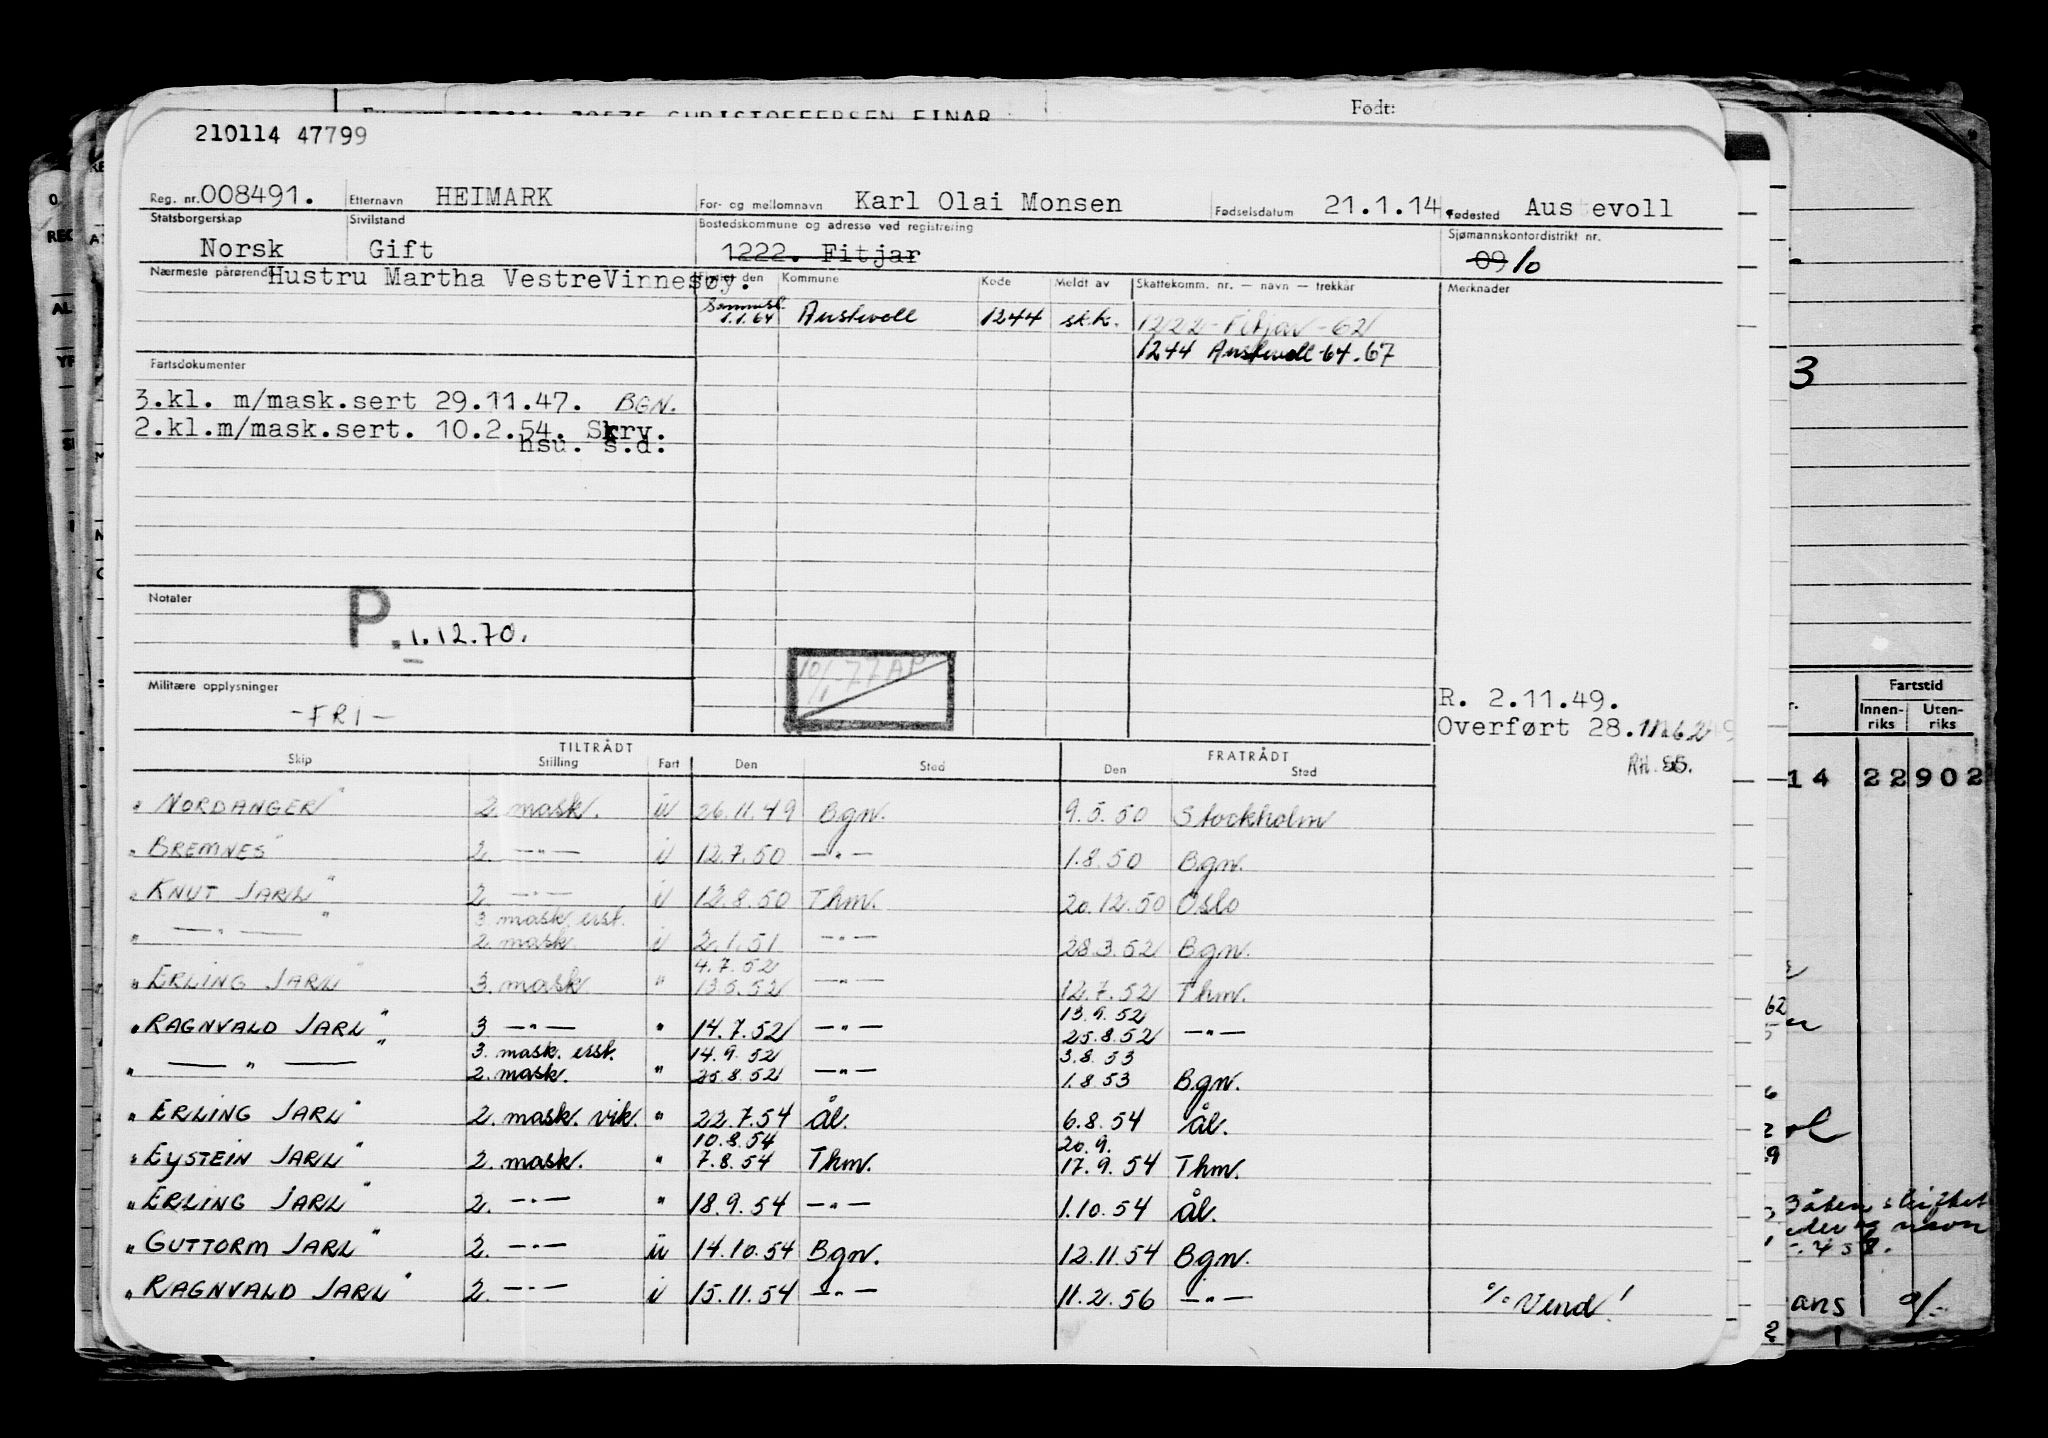 Født:
CHRISTOFFERSEN EINAR
210114 47799
Reg. nr. 008491. Etternavn HEIMARK For- og mellomnavn Karl Olai Monsen Fødselsdatum 21.1.14. Fødested Austevoll
Statsborgerskap Sivilstand Bostedskommune og adresse ved registrering Sjømannskontordistrikt nr.
Norsk Gift 1222. Fitjar 09 10
Nærmeste pårørende Hustru Martha VestreVinnesøy. Flyttet den Kommune Kode Meldt av Skattekomm. nr. — navn — trekkår Merknader
Sammensl. 1.1.64 Austevoll 1244 sk.k. 1222 - Fitjar - 62
1244 Austevoll 64. 67
Fartsdokumenter
3.kl. m/mask.sert 29.11.47. BGN.
2.kl.m/mask.sert. 10.2.54. Skrv.
hsu. s.d.
Notater
P. 1.12.70.
10/1-77 AP
Militære opplysninger
-FRI-
R. 2.11.49.
Overført 28.
RH.
TILTRÅDT FRATRÅDT
Skip Stilling Fart Den Sted Den Sted
" NORDANGER" 2. mask. u 26.11.49 Bgn. 9.5.50 Stockholm
" BREMNES" 2. —"— i 12.7.50 —"— 1.8.50 Bgn.
" KNUT JARL" 2. —"— i 12.8.50 Thm. 20.12.50 Oslo
3. mask erst.
" —"— " 2. mask. i 2.1.51 —"— 28.3.52 Bgn.
4.7.52
" ERLING JARL" 3. mask " 13.5.52 —"— 12.7.52 Thm.
13.9.52
" RAGNVALD JARL" 3 —"— " 14.7.52 —"— 25.8.52 —"—
3. mask. erst. 14.9.52 3.8.53
" —"— " 2. mask. " 25.8.52 —"— 1.8.53 Bgn.
" ERLING JARL" 2. mask. vik. " 22.7.54 Ål. 6.8.54 Ål.
10.8.54 20.9.
" EYSTEIN JARL" 2. mask. " 7.8.54 Thm. 17.9.54 Thm.
" ERLING JARL" 2. —"— " 18.9.54 —"— 1.10.54 Ål.
" GUTTORM JARL" 2. —"— u 14.10.54 Bgn. 12.11.54 Bgn.
" RAGNVALD JARL" 2. —"— i 15.11.54 —"— 11.2.56 —"—
% Vend!
3
Fartstid
Innen-riks Uten-riks
14 22902